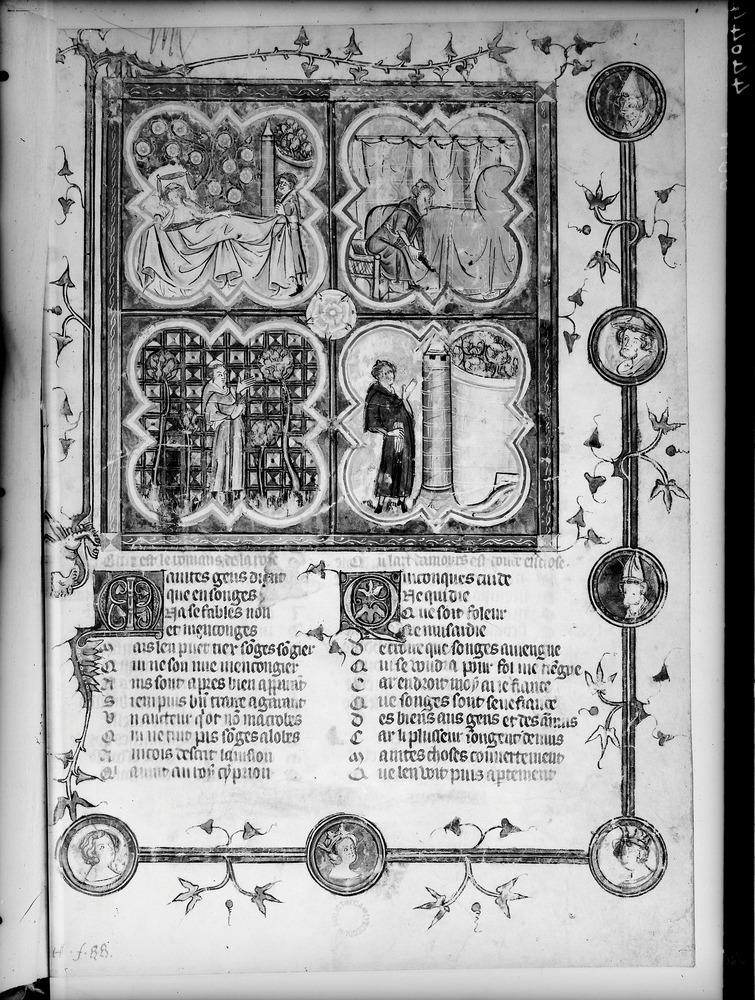 Cy est le romans de la rose
Ou lart damours est toute enclose
Maintes gens dient
que en songes
Na se fables non
et menconges
Mais len puet tier sōges sōgier
Qui ne sont mie mencongier
Ains sont apres bien apparāt
Si en puis bn̄ traire a garant
Vn aucteur q̄ ot nō macrobes
Qui ne tint pas sōges a lobes
Aincois descrit la vision
Qui auint au roy cyprion
Quiconques cuide
Ne qui die
Que soit foleur
Ne musardie
De croire que songes auiengne
Qui se voudra pour fol me tiēgne
Car endroit moy ai ie fiance
Que songes sont senefiance
Des biens aus gens et des ānuis
Car li plusieur songent de nuis
Maintes choses couuertement
Que len voit puis apertement
44044
H. f. 88.